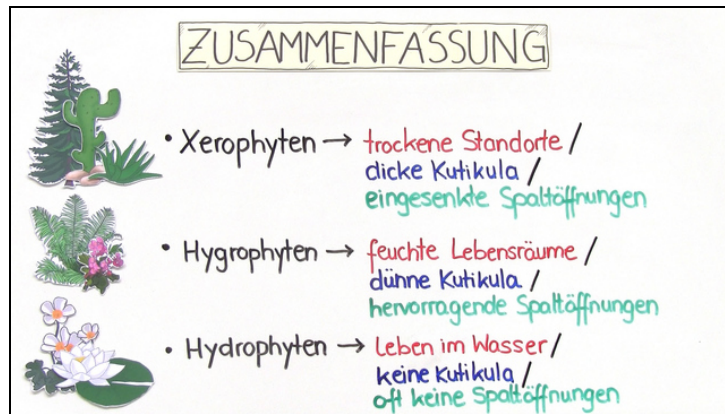 ZUSAMMENFASSUNG
• Xerophyten → trockene Standorte /
dicke Kutikula /
eingesenkte Spaltöffnungen
• Hygrophyten → feuchte Lebensräume /
dünne Kutikula /
hervorragende Spaltöffnungen
• Hydrophyten → Leben im Wasser /
keine Kutikula /
oft keine Spaltöffnungen